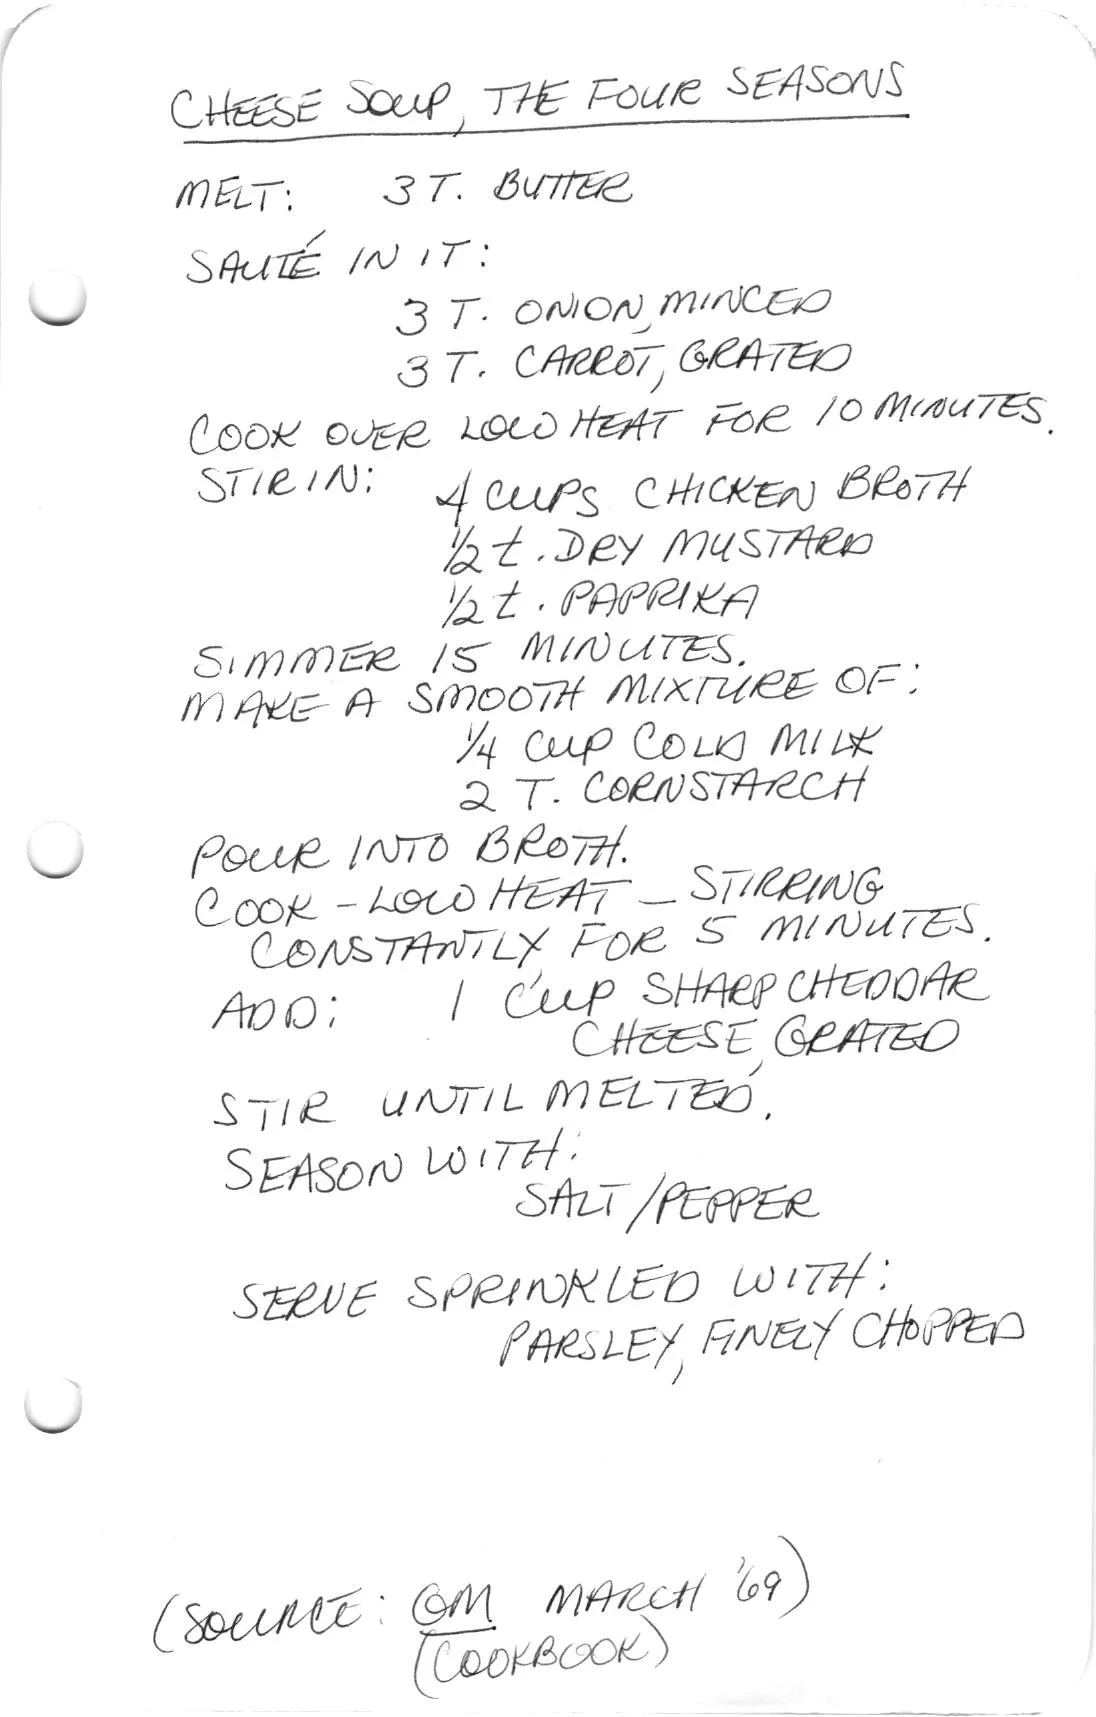 CHEESE SOUP, THE FOUR SEASONS
MELT: 3 T. BUTTER
SAUTÉ IN IT:
3 T. ONION, MINCED
3 T. CARROT, GRATED
COOK OVER LOW HEAT FOR 10 MINUTES.
STIR IN: 4 CUPS CHICKEN BROTH
1/2 t. DRY MUSTARD
1/2 t. PAPRIKA
SIMMER 15 MINUTES.
MAKE A SMOOTH MIXTURE OF:
1/4 CUP COLD MILK
2 T. CORNSTARCH
POUR INTO BROTH.
COOK - LOW HEAT - STIRRING
CONSTANTLY FOR 5 MINUTES.
ADD: 1 CUP SHARP CHEDDAR
CHEESE, GRATED
STIR UNTIL MELTED.
SEASON WITH:
SALT/PEPPER
SERVE SPRINKLED WITH:
PARSLEY, FINELY CHOPPED
(SOURCE: GM MARCH '69)
(COOKBOOK)